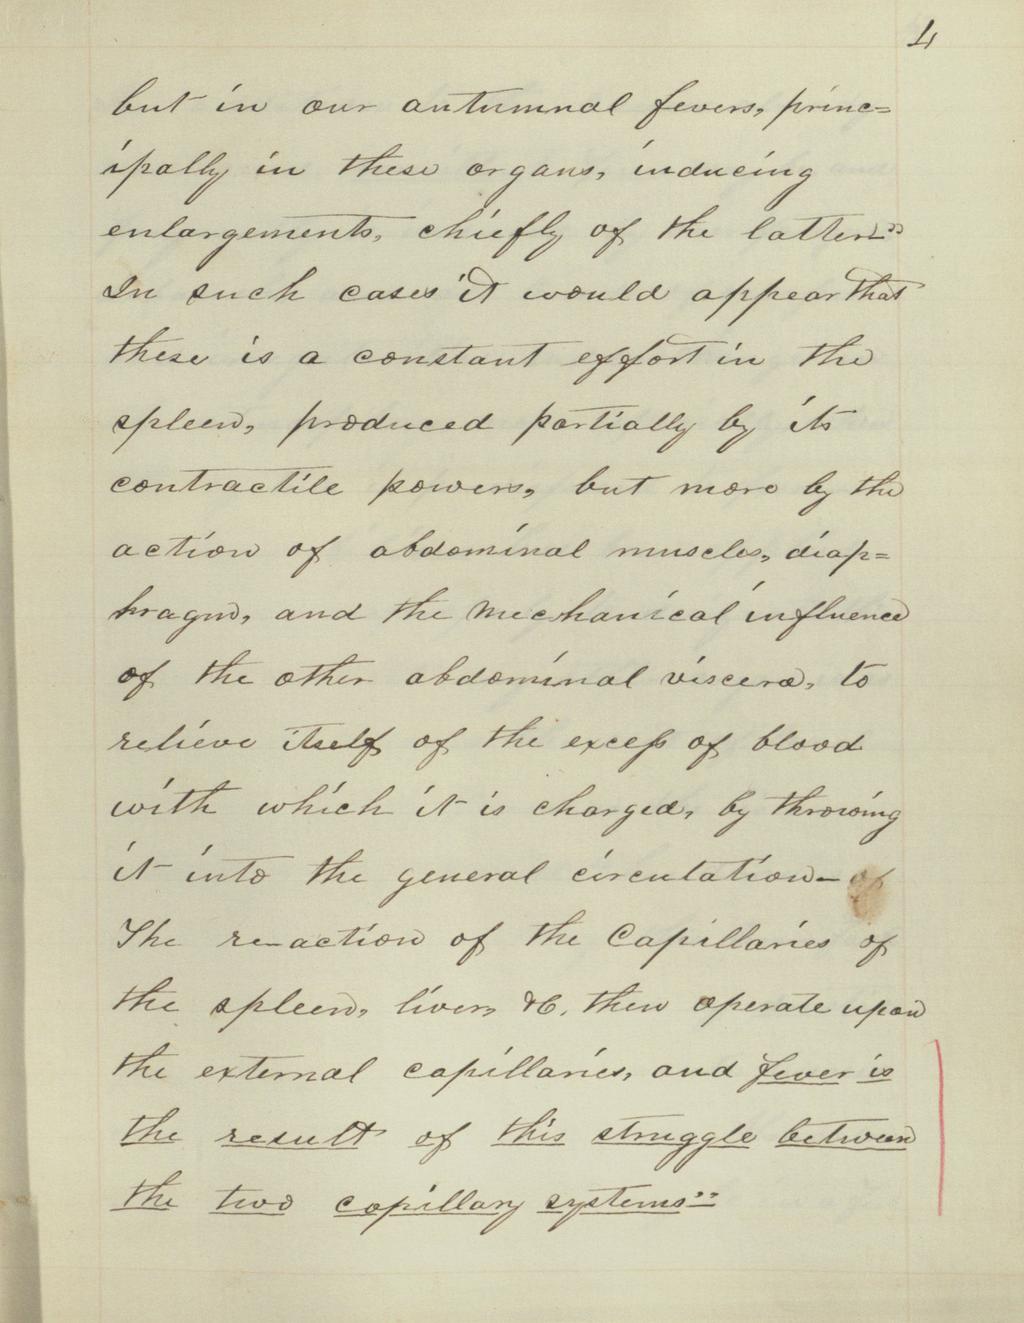 4
but in our autumnal fevers, princ=
ipally in these organs, inducing
enlargements, chiefly of the latter"
In such cases it would appear that
there is a constant effort in the
spleen, produced partially by its
contractile powers, but more by the
action of abdominal muscles, diap=
hragm, and the mechanical influence
of the other abdominal viscera, to
relieve itself of the excess of blood
with which it is charged, by throwing
it into the general circulation— of
The re-action of the Capillaries of
the spleen, liver, &c, then operate upon
the external capillaries, and fever is
the result of this struggle between
the two capillary systems"